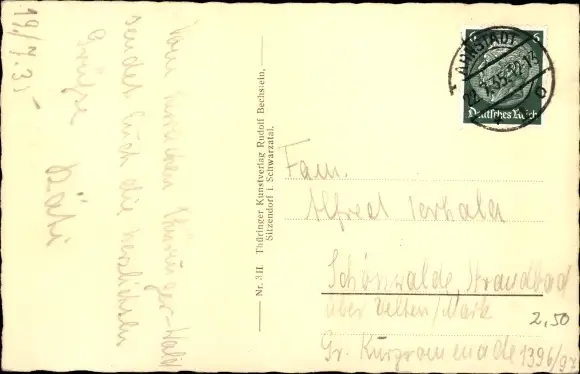 19/7.35
Vom schönen Thüringer-Wald
sendet Euch die herzlichsten
Grüße
Käti
Nr. 3 II Thüringer Kunstverlag Rudolf Bechstein,
Sitzendorf i. Schwarzatal.
6
ARNSTADT
22.7.35.12-13
Deutsches Reich
Fam.
Alfred
Schönwalde, Strandbad
über Velten/Mark
2,50
Gr. Kurpromenade 1396/97